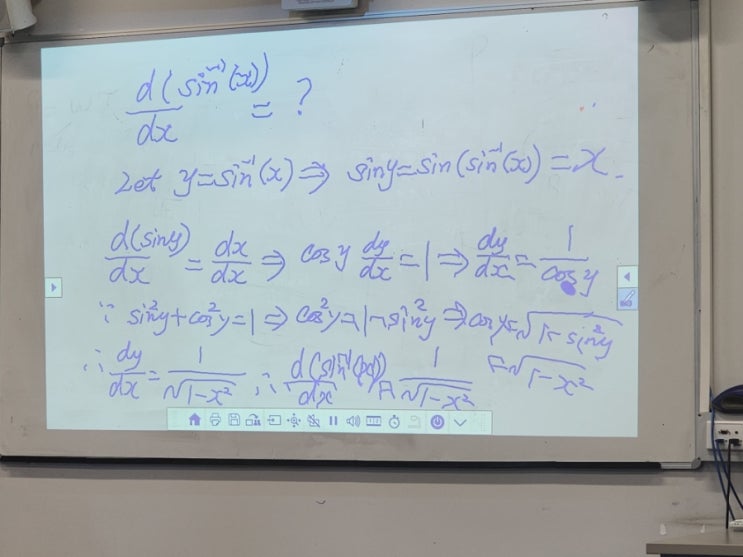 d(sin⁻¹(x))/dx = ?
Let y=sin⁻¹(x) ⇒ siny=sin(sin⁻¹(x)) = x.
d(siny)/dx = dx/dx ⇒ cosy dy/dx = 1 ⇒ dy/dx = 1/cosy
∵ sin²y+cos²y=1 ⇒ cos²y=1-sin²y ⇒ cosy=√(1-sin²y)
=√(1-x²)
∴ dy/dx = 1/√(1-x²) ∴ d(sin⁻¹(x))/dx = 1/√(1-x²)